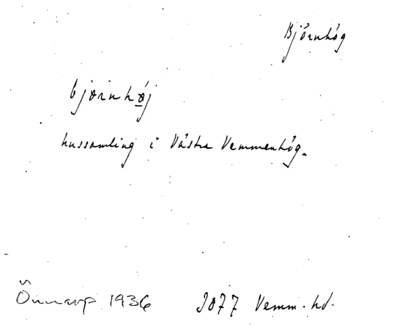 Björnhög
bjørnhǿj
hussamling i Västra Vemmenhög.
Önnarp 1936 2077 Vemm. hd.